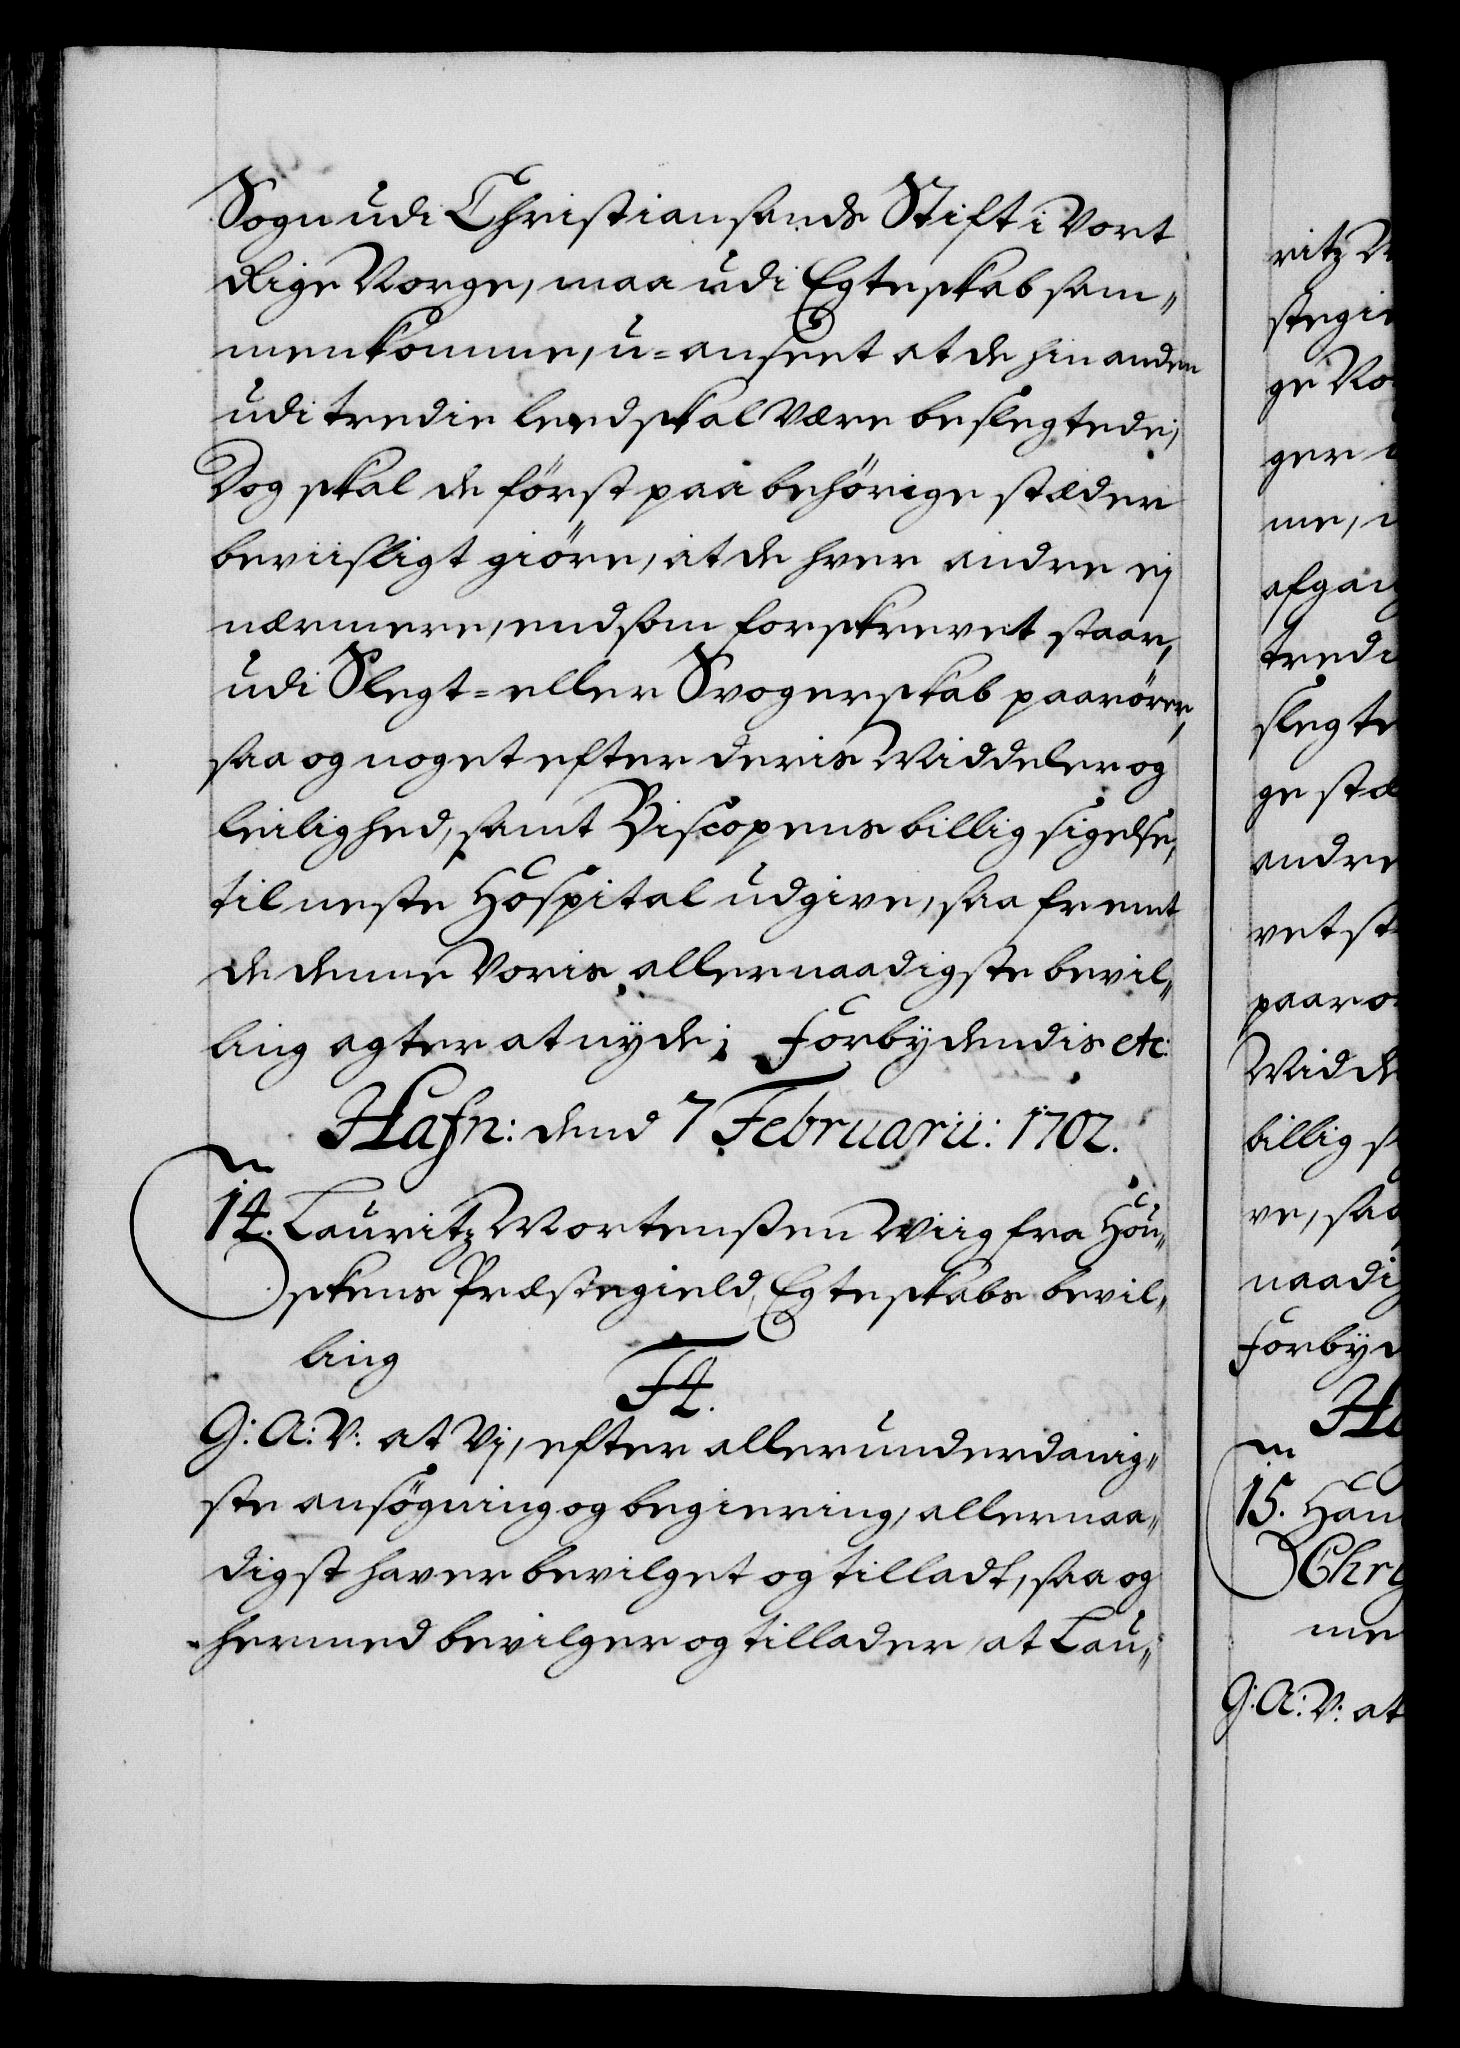 Sogn udi Christiansands Stift i Vort
Rige Norge, maa udi Egteskab sam„
menkomme, u=anseet at de hinanden
udi tredie leed skal Være beslegtede,
Dog skal de först paa behörige stæder
beviisligt giöre, at de hver andre ej
nærmere, end som forskrevet staar,
udi Slegt= eller Svogerskab paarörer,
saa og noget efter deris Middeler og
leilighed, samt Biscopens billig sigelse,
til neste Hospital udgive, saa fremt
de denne Voris allernaadigste bevil„
ling agter at nyde; Forbydendis etc:
Hafn: dend 7 Februarii: 1702.
14. Lauritz Mortenßen Wiig fra Hou„
skens Præstegield, Egteskabs bevil„
ling
F4.
G: A: V: at Vj, efter allerunderdanig„
ste ansögning og begiering, allernaa„
digst haver bevilget og tilladt, saa og
hermed bevilger og tillader, at Lau„
ritz M
stegie
ge No
ger
me,
afgang
tredi
slegte
ge stæ
andre
vet st
paarö
Midde
billig s
ve, saa
naadig
Forbyd
Ha
15. Han
Chri
me
G: A: V: at